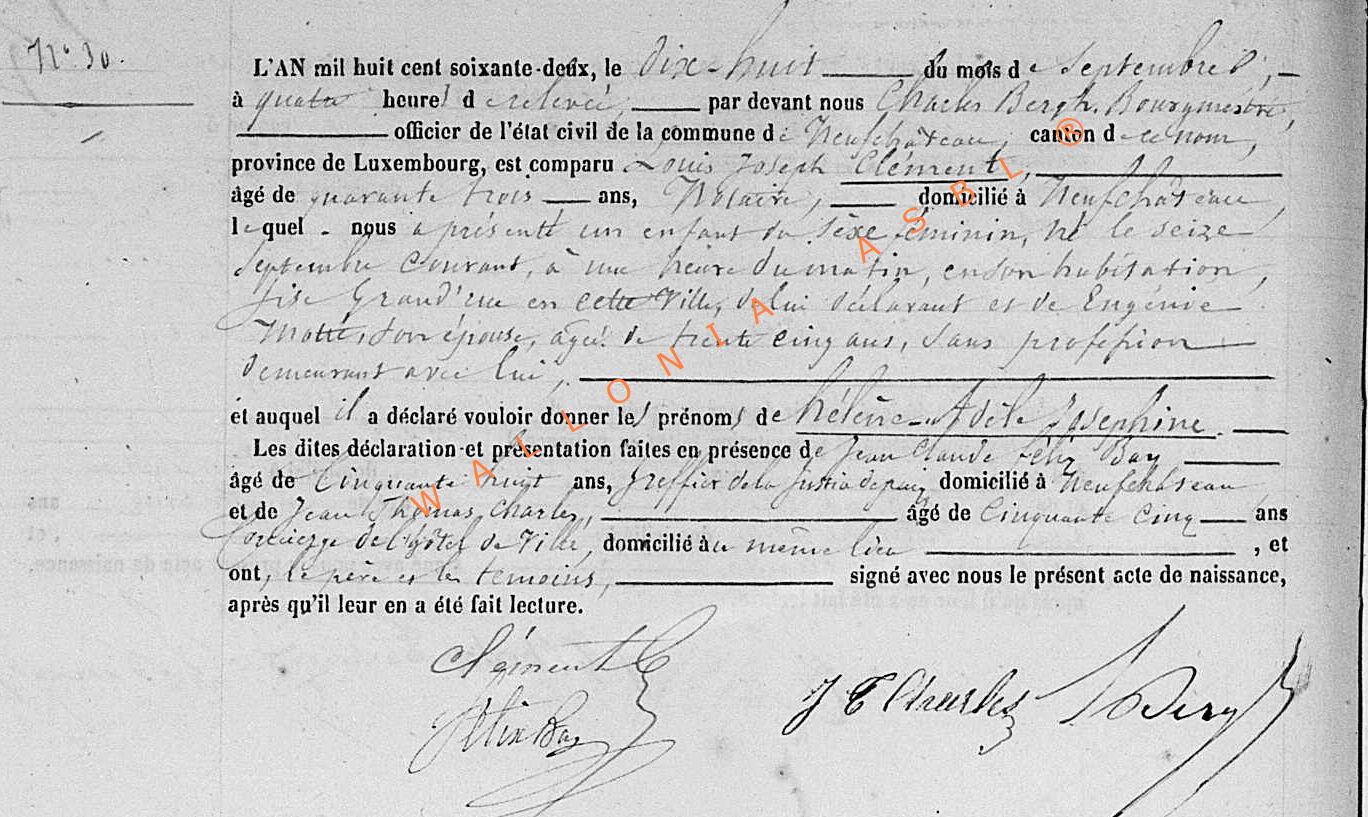 N° 30.
L'AN mil huit cent soixante-deux, le dix-huit du mois de Septembre,
à quatre heures de relevée, par devant nous Charles Bergh, Bourgmestre,
officier de l'état civil de la commune de Neufchâteau, canton de ce nom,
province de Luxembourg, est comparu Louis Joseph Clément,
âgé de quarante trois ans, Notaire, domicilié à Neufchâteau,
lequel nous a présenté un enfant du sèxe féminin, né le seize
Septembre courant, à une heure du matin, en son habitation,
sise Grand'rue en cette Ville, de lui déclarant et de Eugénie
son épouse, agée de trente cinq ans, sans profession
demeurant avec lui,
et auquel il a déclaré vouloir donner les prénoms de hélène Adèle Joséphine.
Les dites déclaration et présentation faites en présence de Jean Claude Félix Bay
âgé de Cinquante huit ans, Greffier de la justice de paix domicilié à Neufchâteau
et de Jean Thomas Charles, âgé de Cinquante Cinq ans
Concierge de l'hôtel de Ville, domicilié au même lieu , et
ont, le père et les témoins, signé avec nous le présent acte de naissance,
après qu'il leur en a été fait lecture.
Clément
J T Charles
Félix Bay
WALLONIA ASBL ®